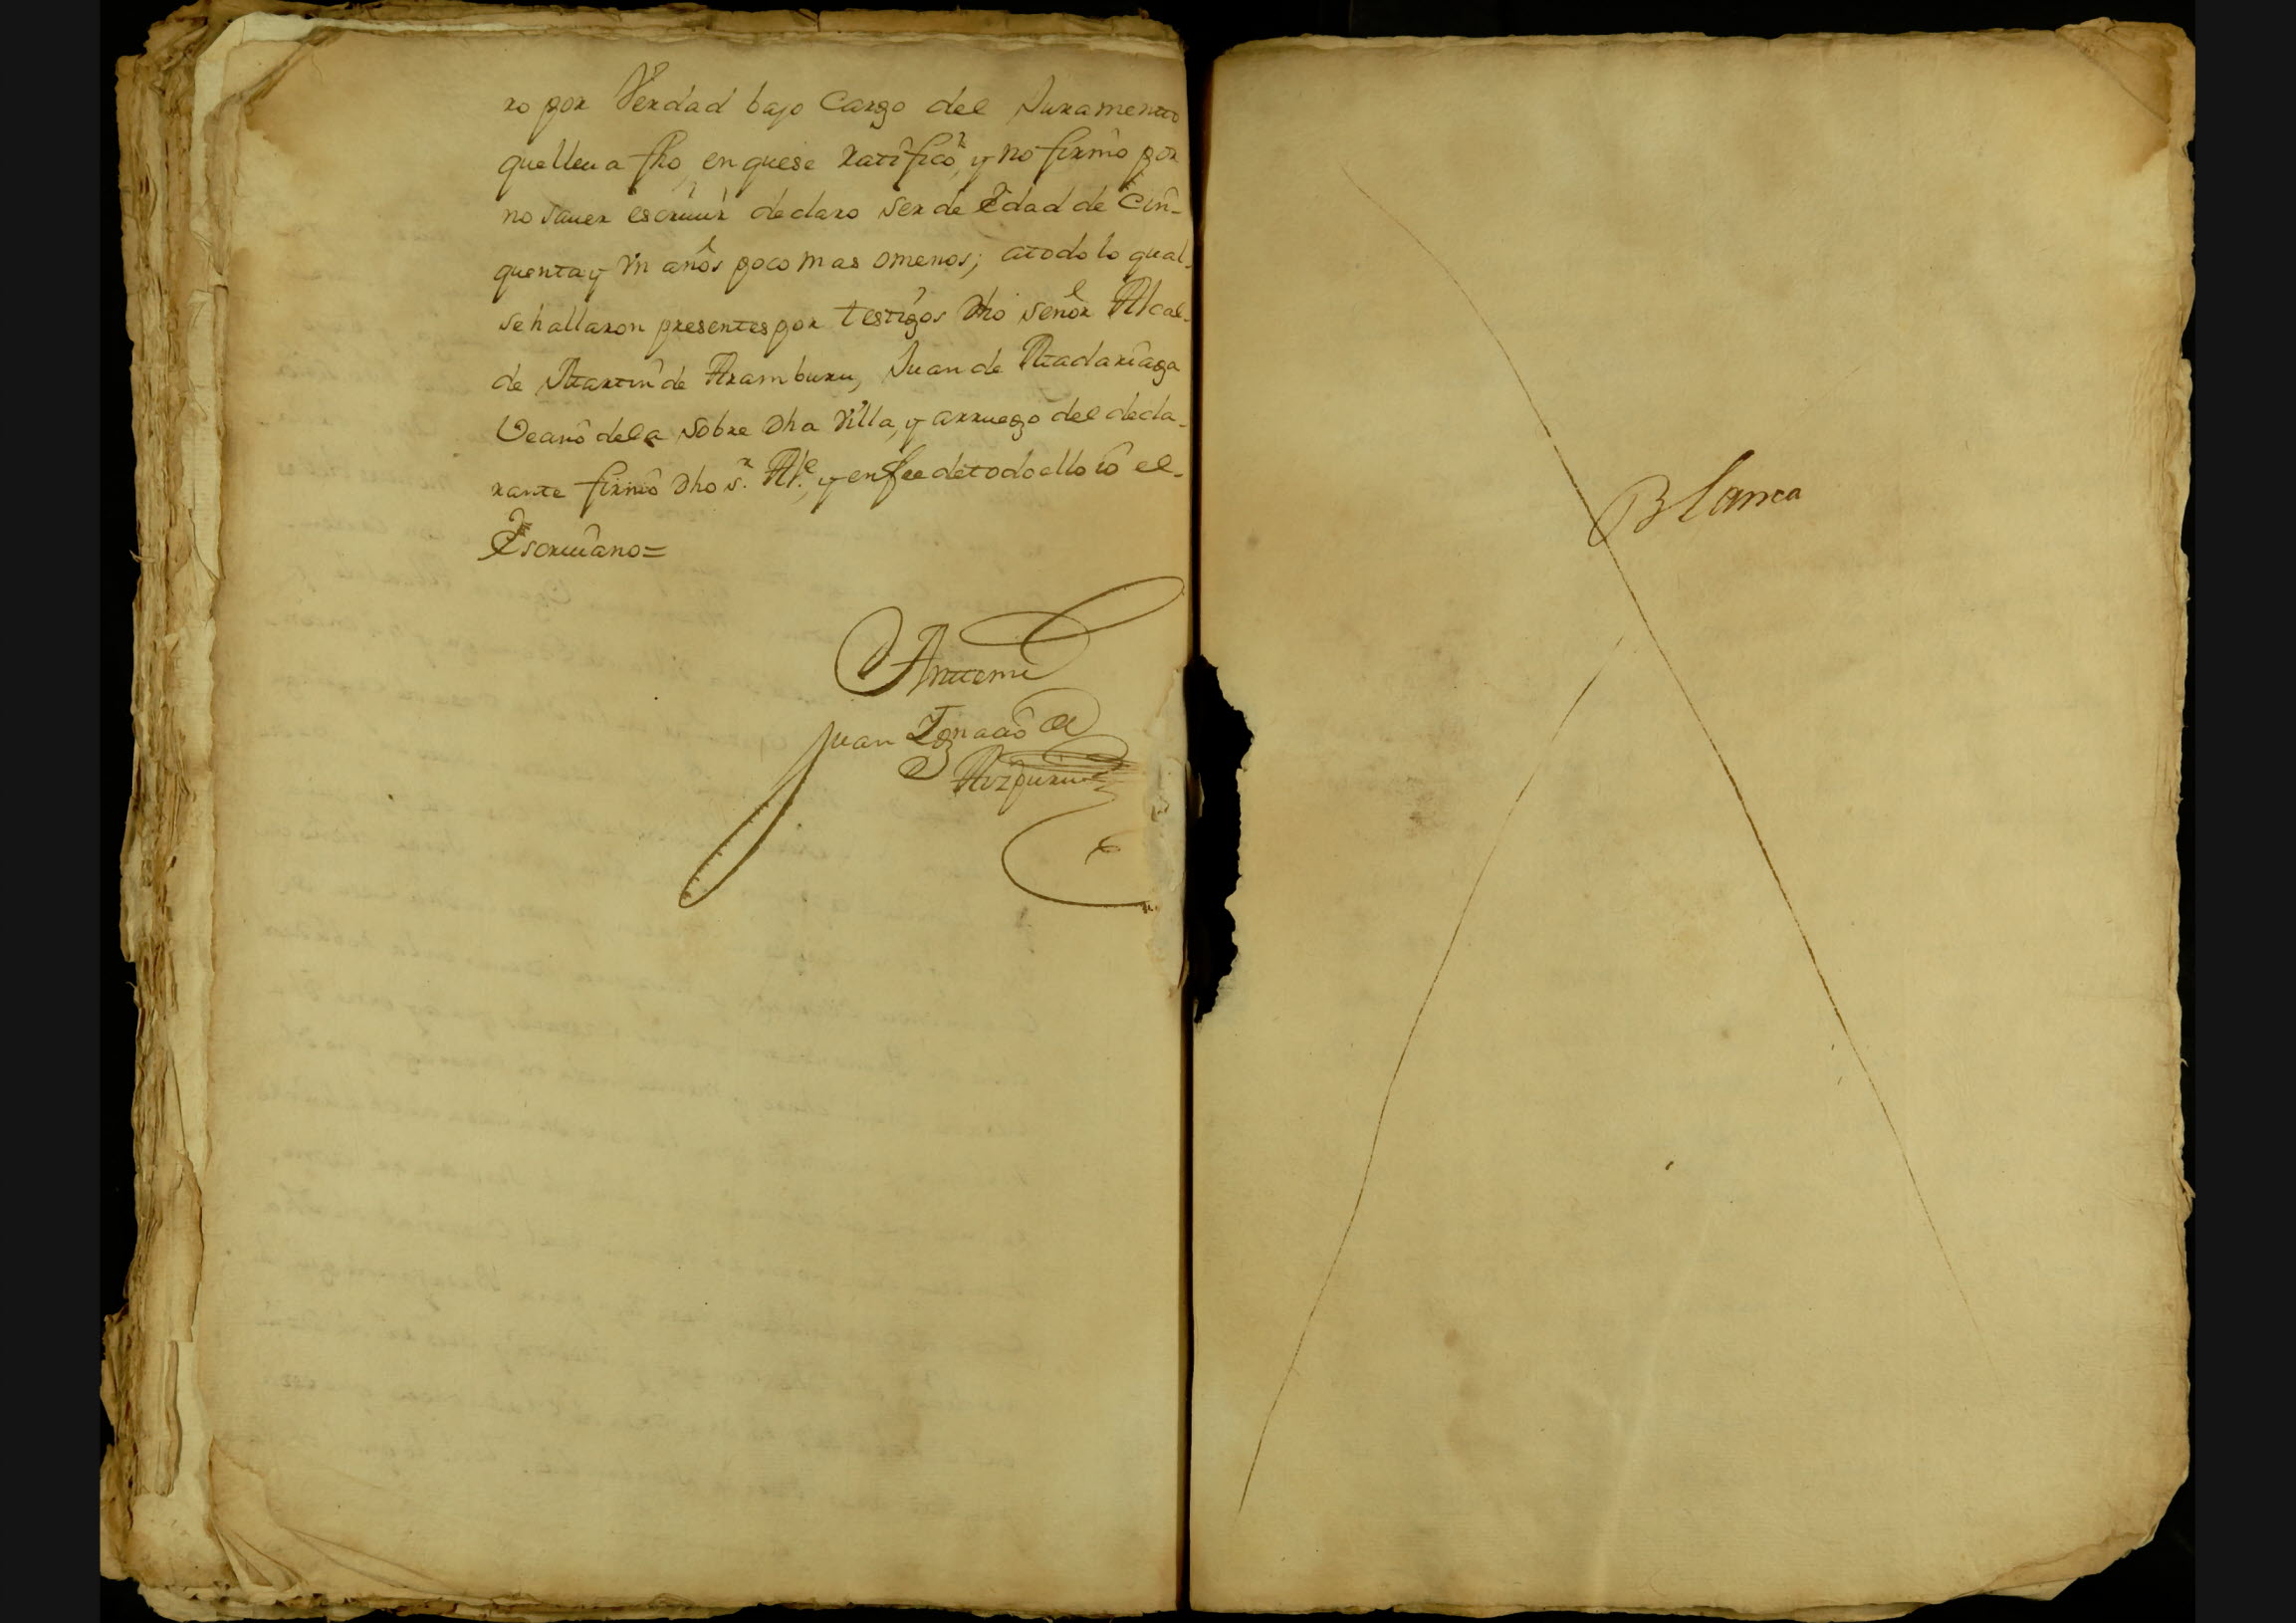 ro por Verdad bajo Cargo del Juramento
que lleua fho, en que se ratifico, y no firmò por
no sauer escriuir declaro ser de Edad de Cin-
quenta y Vn años poco mas o menos; a todo lo qual-
se hallaron presentes por testigos Dho señor Alcal-
de Martin de Aramburu, Juan de Madariaga
Vecino de la sobre Dha Villa, y a rruego del decla-
rante firmò Dho s.r Al.e, y en fee de todo ello io el-
Escriuano=
Antemi
Juan Ignacio de
Aizpuru
Blanca